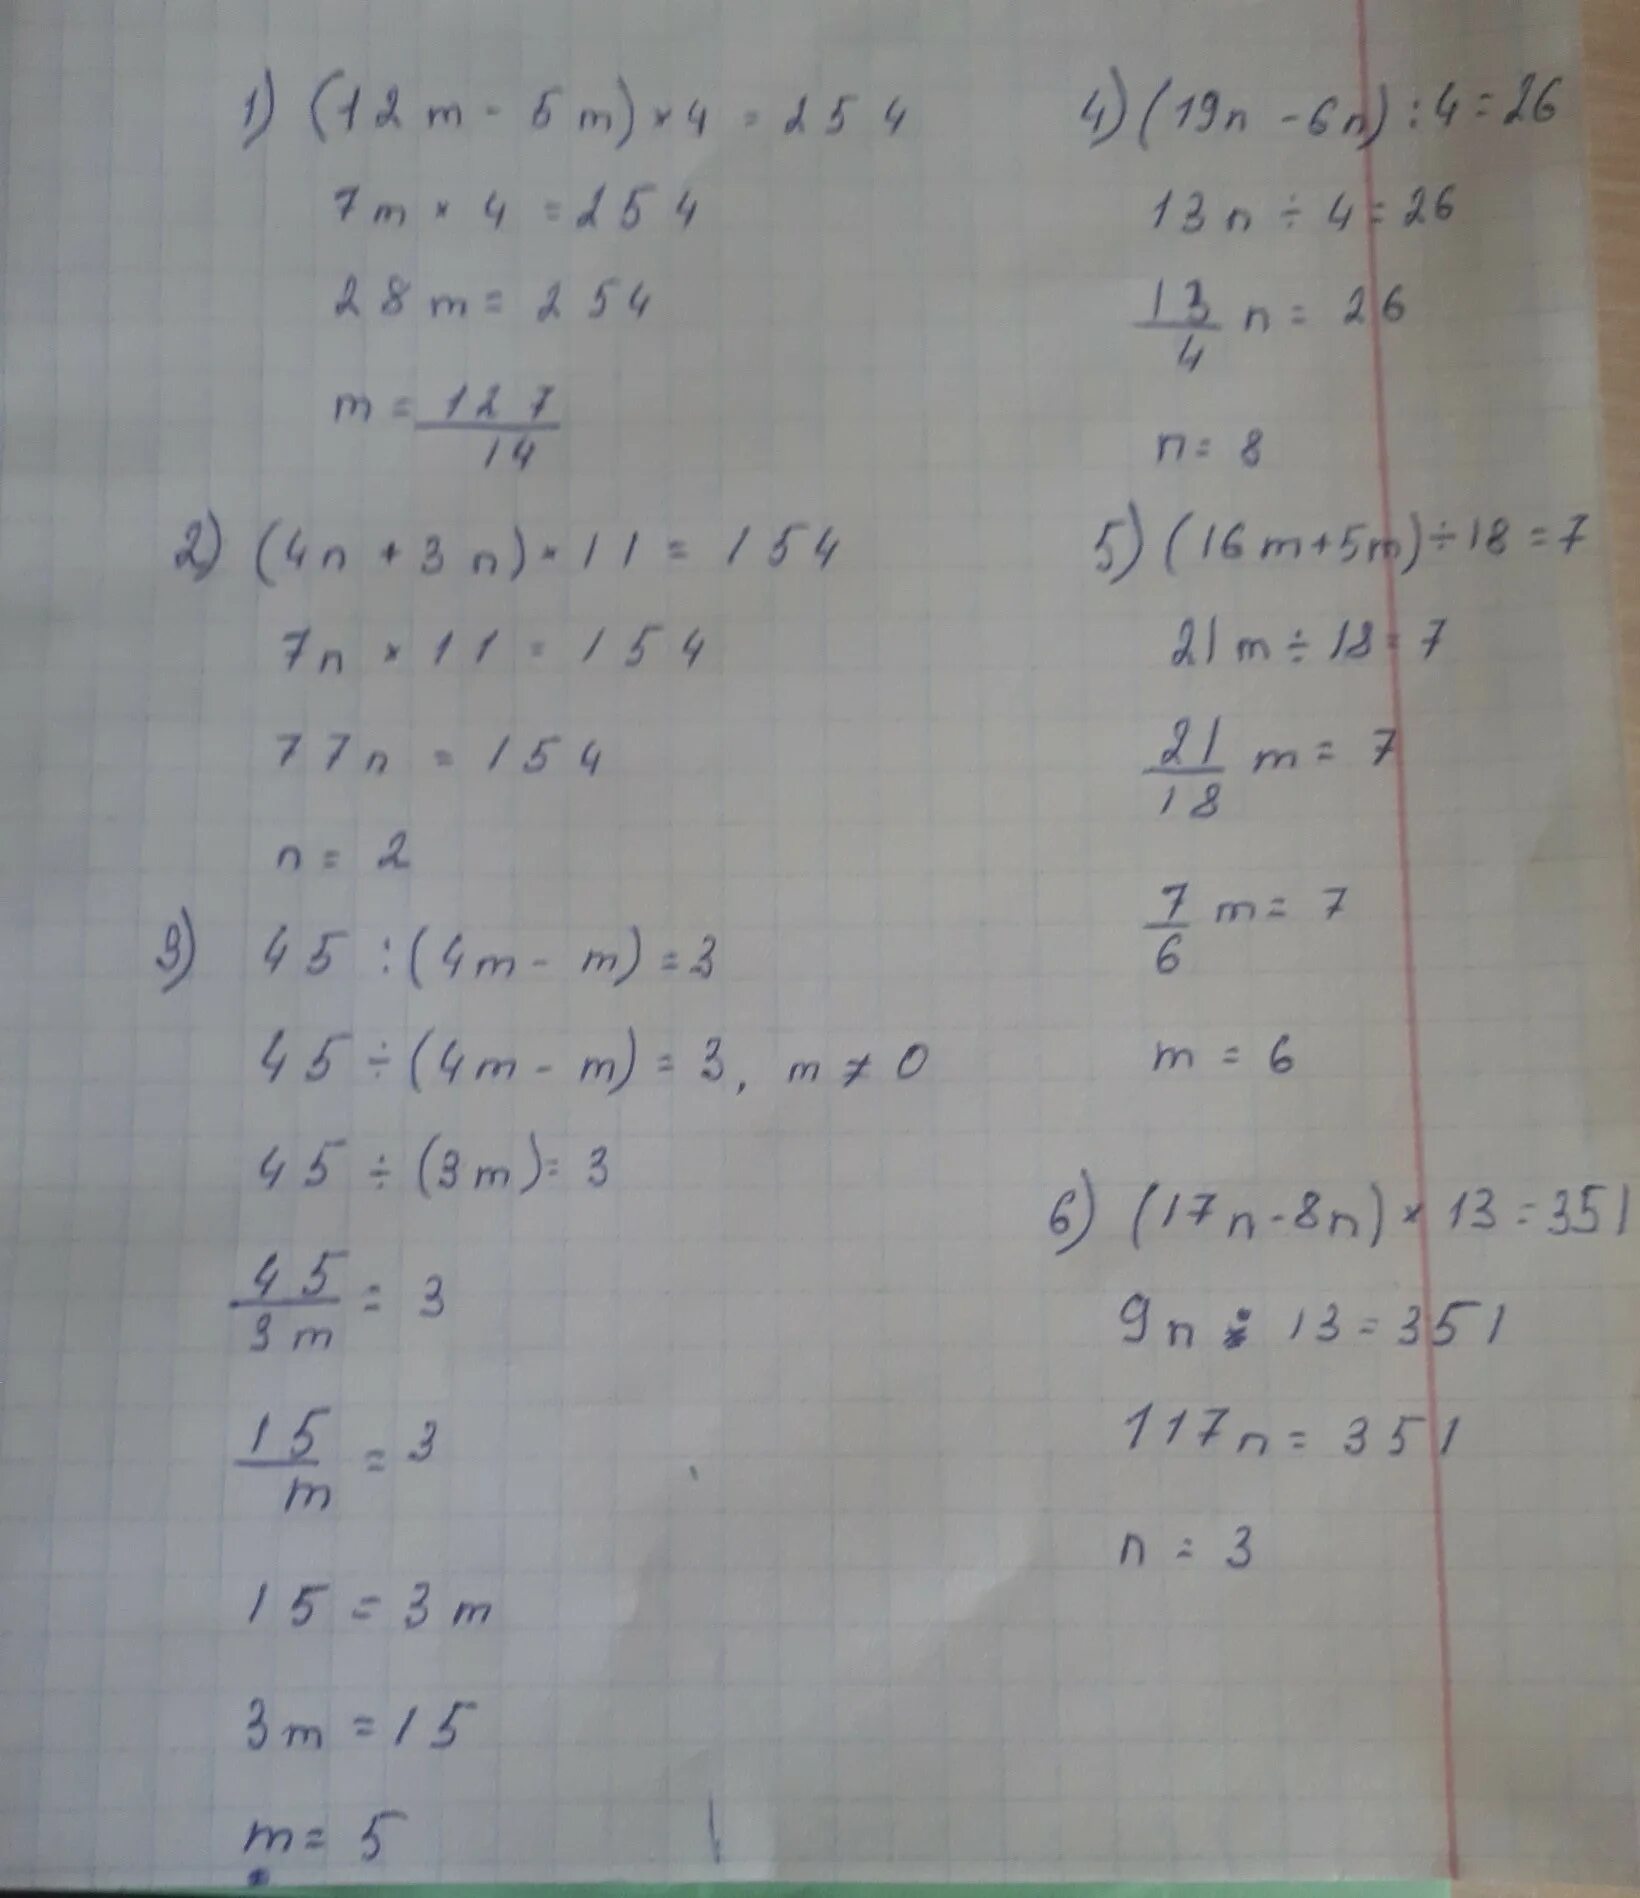 1) (12m - 5m) × 4 = 254
7m × 4 = 254
28m = 254
m = 127/14
2) (4n + 3n) × 11 = 154
7n × 11 = 154
77n = 154
n = 2
3) 45 : (4m - m) = 3
45 ÷ (4m - m) = 3, m ≠ 0
45 ÷ (3m) = 3
45/3m = 3
15/m = 3
15 = 3m
3m = 15
m = 5
4) (19n - 6n) : 4 = 26
13n ÷ 4 = 26
13/4 n = 26
n = 8
5) (16m + 5m) ÷ 18 = 7
21m ÷ 18 = 7
21/18 m = 7
7/6 m = 7
m = 6
6) (17n - 8n) × 13 = 351
9n × 13 = 351
117n = 351
n = 3